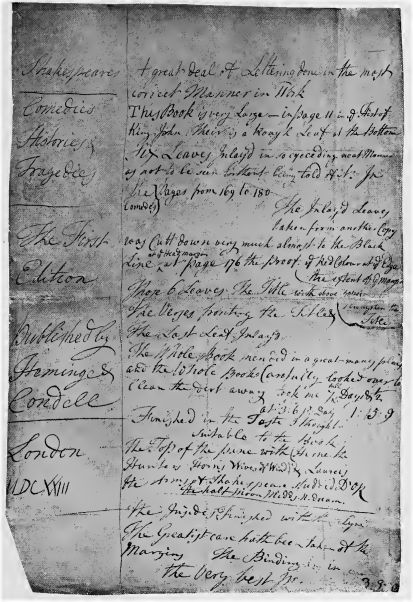 Shakespeares
Comedies
Histories &
Tragedies
The First
Edition
Published by
Heminge &
Condell
London
MDCXXIII
A great deal of Lettering done in the most
correct Manner in Ink
This Book is very Large - in page 11 in ye Hist of
King John Their is a Rough Leaf at the Bottom
Six Leaves Inlay'd in so exceeding neat Manner
as not to be seen without being told of it: In
the Pages from 169 to 180
Comedes
The Inlay'd Leaves
taken from another Copy
was Cutt down very much almost to the Black
Line at page 176 the Proof of Red Colour at ye Edge
at ye Head margin
the extent of ye Margin
These 6 Leaves. The Title with above
The Verses fronting the Title
Title
The Last Leaf Inlay'd
The Whole Book mended in a great many places
and the Whole Book Carefully looked over to
Clean the dirt away took me Days &c
at 3:6 pr Day 1:15:9
Finished in the Taste I thought
Suitable to the Book
The Top of the
Hunters Horns Wives of Winds & Laurels
the Arms of Shakespeare
the half moon Midds N. dream
the Insides finished with the Lyre
The Greatest care hath been taken of the
Margins The Binding is in
the Very best
3-9-0